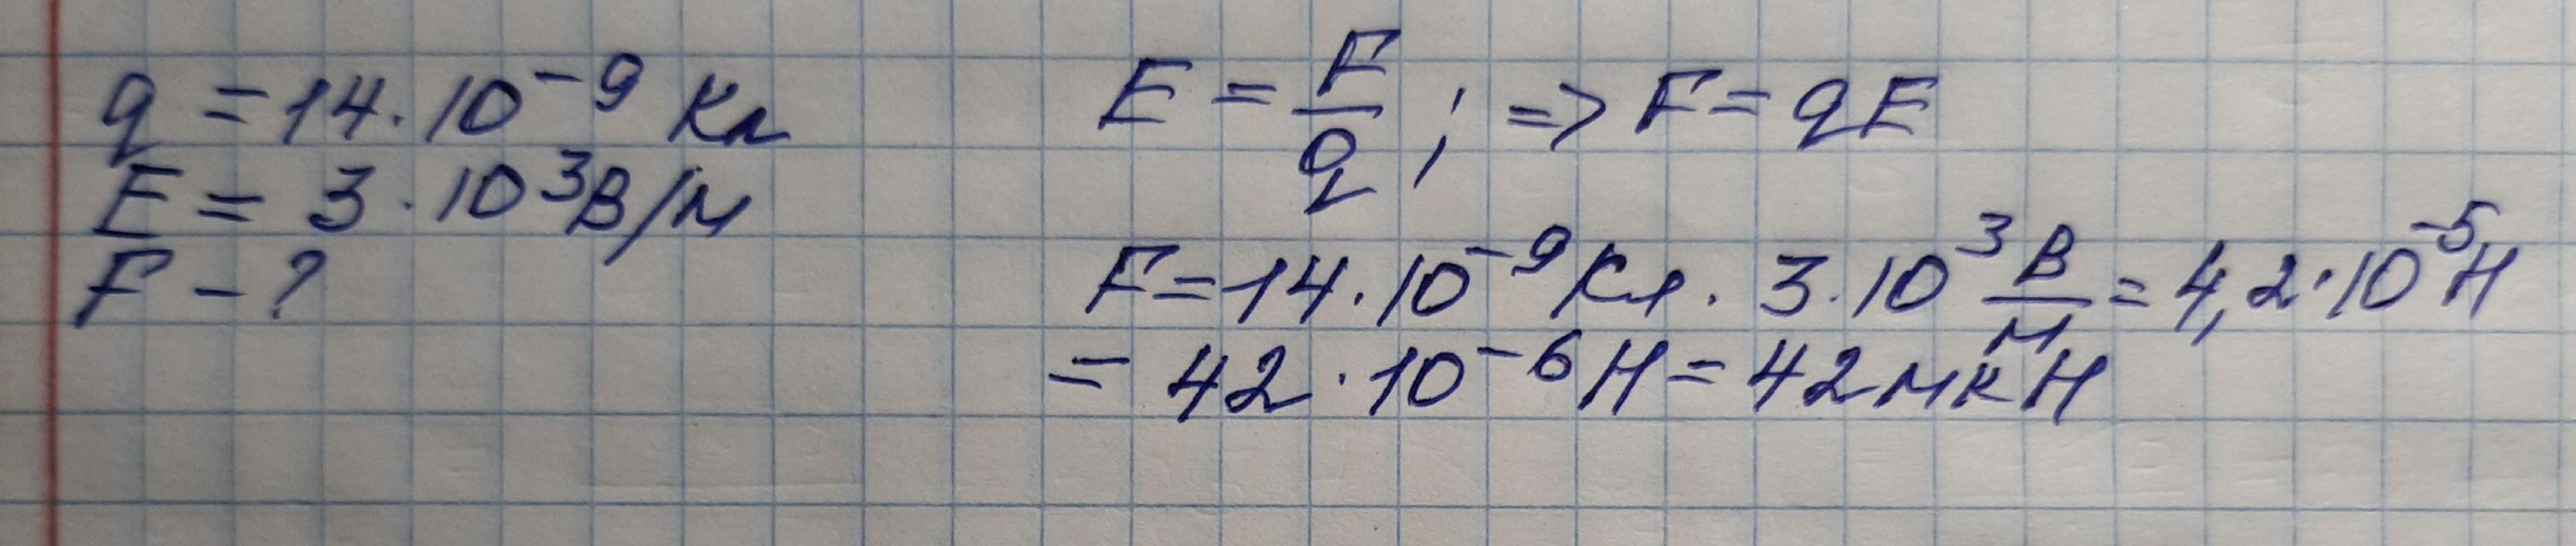 q = 14 · 10⁻⁹ Кл
E = 3 · 10³ В/м
F – ?
E = F/q ; => F = qE
F = 14 · 10⁻⁹ Кл · 3 · 10³ В/м = 4,2 · 10⁻⁵ Н
= 42 · 10⁻⁶ Н = 42 мкН